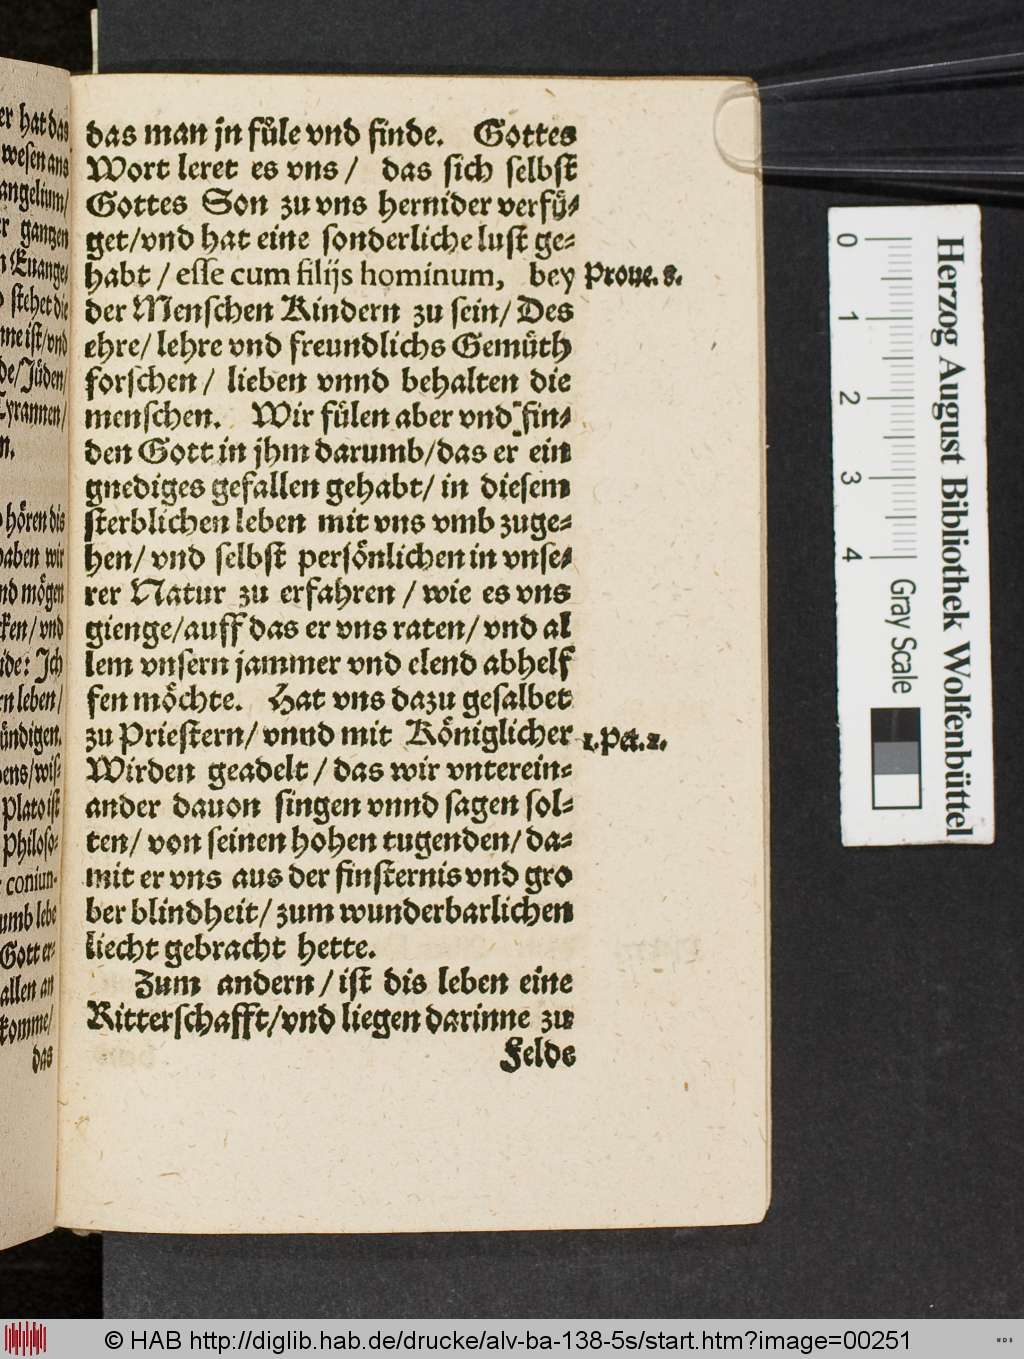 er hat das
wesen ans
angelium/
gantzen
n Euange⸗
stehet die
nne ist/vnd
de/Jüden/
Tyrannen/
n.
hören dis
haben wir
nd mögen
ken/vnd
ide: Jch
rn leben/
ündigen.
ens/wis⸗
Plato ist
Philoso⸗
coniun-
umb lebe
Gott er⸗
allen an
komme/
das
das man jn füle vnd finde. Gottes
Wort leret es vns / das sich selbst
Gottes Son zu vns hernider verfü⸗
get/vnd hat eine sonderliche lust ge⸗
habt / esse cum filijs hominum, bey Proue. 8.
der Menschen Kindern zu sein/ Des
ehre/ lehre vnd freundlichs Gemüth
forschen / lieben vnnd behalten die
menschen. Wir fülen aber vnd fin⸗
den Gott in jhm darumb/das er ein
gnediges gefallen gehabt/ in diesem
sterblichen leben mit vns vmb zuge⸗
hen/ vnd selbst persönlichen in vnse⸗
rer Natur zu erfahren / wie es vns
gienge/auff das er vns raten/ vnd al
lem vnsern jammer vnd elend abhelf
fen möchte. Hat vns dazu gesalbet
zu Priestern/ vnnd mit Königlicher 1. Pet. 2.
Wirden geadelt / das wir vnterein⸗
ander dauon singen vnnd sagen sol⸗
ten/ von seinen hohen tugenden/ da⸗
mit er vns aus der finsternis vnd gro
ber blindheit/ zum wunderbarlichen
liecht gebracht hette.
Zum andern / ist dis leben eine
Ritterschafft/vnd liegen darinne zu
Felde
0 1 2 3 4 Gray Scale
Herzog August Bibliothek Wolfenbüttel
© HAB http://diglib.hab.de/drucke/alv-ba-138-5s/start.htm?image=00251
WDB